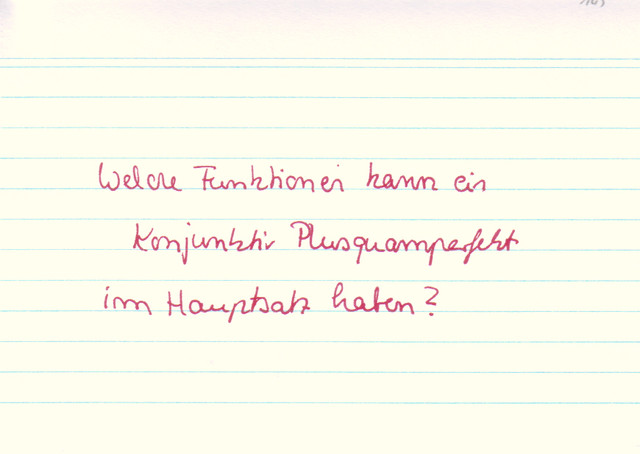 Welche Funktionen kann ein
Konjunktiv Plusquamperfekt
im Hauptsatz haben?